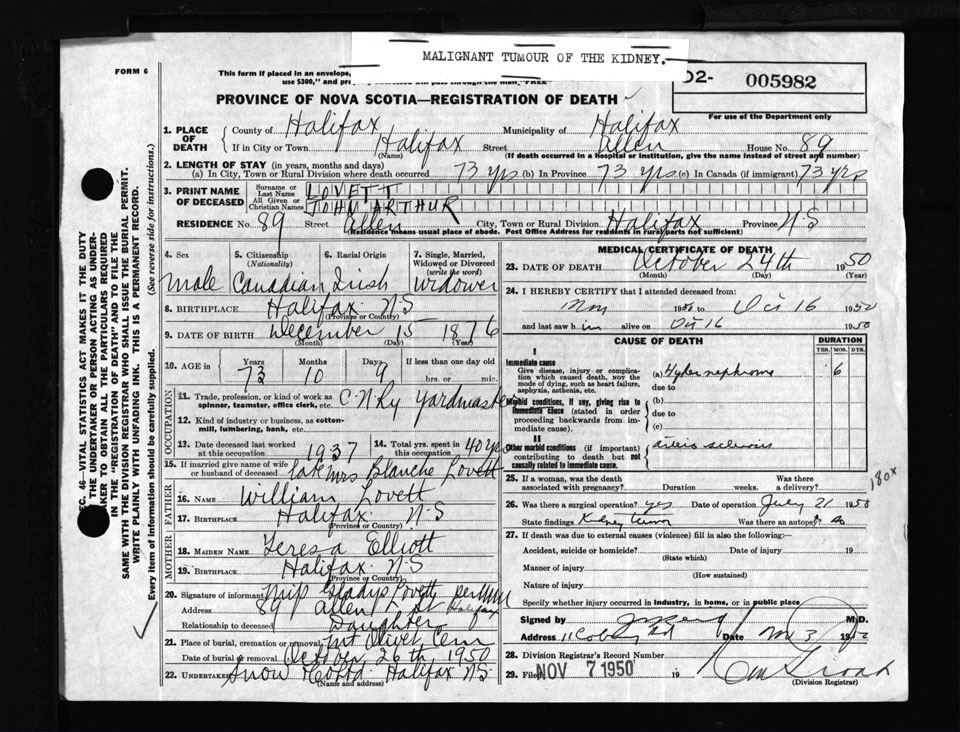 MALIGNANT TUMOUR OF THE KIDNEY.
FORM 6
This form if placed in an envelope,
use $300," and
02- 005982
PROVINCE OF NOVA SCOTIA—REGISTRATION OF DEATH
For use of the Department only
1. PLACE OF DEATH
County of Halifax Municipality of Halifax
If in City or Town Halifax Street Allen House No. 89
(Name) (If death occurred in a hospital or institution, give the name instead of street and number)
2. LENGTH OF STAY (in years, months and days)
(a) In City, Town or Rural Division where death occurred 73 yrs (b) In Province 73 yrs (c) In Canada (if immigrant) 73 yrs
3. PRINT NAME OF DECEASED
Surname or Last Name LOVETT
All Given or Christian Names JOHN ARTHUR
RESIDENCE No. 89 Street Allen City, Town or Rural Division Halifax Province N S
(Residence means usual place of abode. Post Office Address for residents in rural parts not sufficient)
4. Sex 5. Citizenship (Nationality) 6. Racial Origin 7. Single, Married, Widowed or Divorced (write the word)
Male Canadian Irish Widower
8. BIRTHPLACE Halifax N S
(Province or Country)
9. DATE OF BIRTH December 15 1876
(Month) (Day) (Year)
10. AGE in Years Months Days If less than one day old
73 10 9 hrs. or min.
OCCUPATION
11. Trade, profession, or kind of work as spinner, teamster, office clerk, etc. C N Ry Yardmaster
12. Kind of industry or business, as cotton-mill, lumbering, bank, etc.
13. Date deceased last worked at this occupation 1937 14. Total yrs. spent in this occupation 40 yrs
15. If married give name of wife or husband of deceased late Mrs Blanche Lovett
FATHER
16. NAME William Lovett
17. BIRTHPLACE Halifax N-S
(Province or Country)
MOTHER
18. MAIDEN NAME Teresa Elliott
19. BIRTHPLACE Halifax N S
(Province or Country)
20. Signature of informant Gladys Lovett
Address 89 Allen St Halifax
Relationship to deceased Daughter
21. Place of burial, cremation or removal Mt Olivet Cem
Date of burial or removal October 26th 1950
22. UNDERTAKER Snow Halifax N S
(Name and address)
MEDICAL CERTIFICATE OF DEATH
23. DATE OF DEATH October 24th 1950
(Month) (Day)
24. I HEREBY CERTIFY that I attended deceased from:
May 1950 to Oct 16 1950
and last saw him alive on Oct 16 1950
CAUSE OF DEATH DURATION
YRS. MOS. DYS.
I
Immediate cause
Give disease, injury or complication which caused death, not the mode of dying, such as heart failure, asphyxia, asthenia, etc.
(a) Hypernephroma 6
due to
Morbid conditions, if any, giving rise to immediate cause (stated in order proceeding backwards from immediate cause).
(b)
due to
(c)
II
Other morbid conditions (if important) contributing to death but not causally related to immediate cause.
arterio sclerosis
25. If a woman, was the death associated with pregnancy? Duration weeks. Was there a delivery?
180x
26. Was there a surgical operation? yes Date of operation July 21 1950
State findings Kidney tumor Was there an autopsy? no
27. If death was due to external causes (violence) fill in also the following:
Accident, suicide or homicide? Date of injury 19
(State which)
Manner of injury
(How sustained)
Nature of injury
Specify whether injury occurred in industry, in home, or in public place
Signed by M.D.
Address Rd Date Nov 3 19
28. Division Registrar's Record Number
29. Filed NOV 7 1950 19
(Division Registrar)
SEC. 46—VITAL STATISTICS ACT MAKES IT THE DUTY
OF THE UNDERTAKER OR PERSON ACTING AS UNDER-
TAKER TO OBTAIN ALL THE PARTICULARS REQUIRED
IN THE "REGISTRATION OF DEATH" AND TO FILE THE
SAME WITH THE DIVISION REGISTRAR WHO SHALL ISSUE THE BURIAL PERMIT.
WRITE PLAINLY WITH UNFADING INK. THIS IS A PERMANENT RECORD.
Every item of information should be carefully supplied. (See reverse side for instructions.)